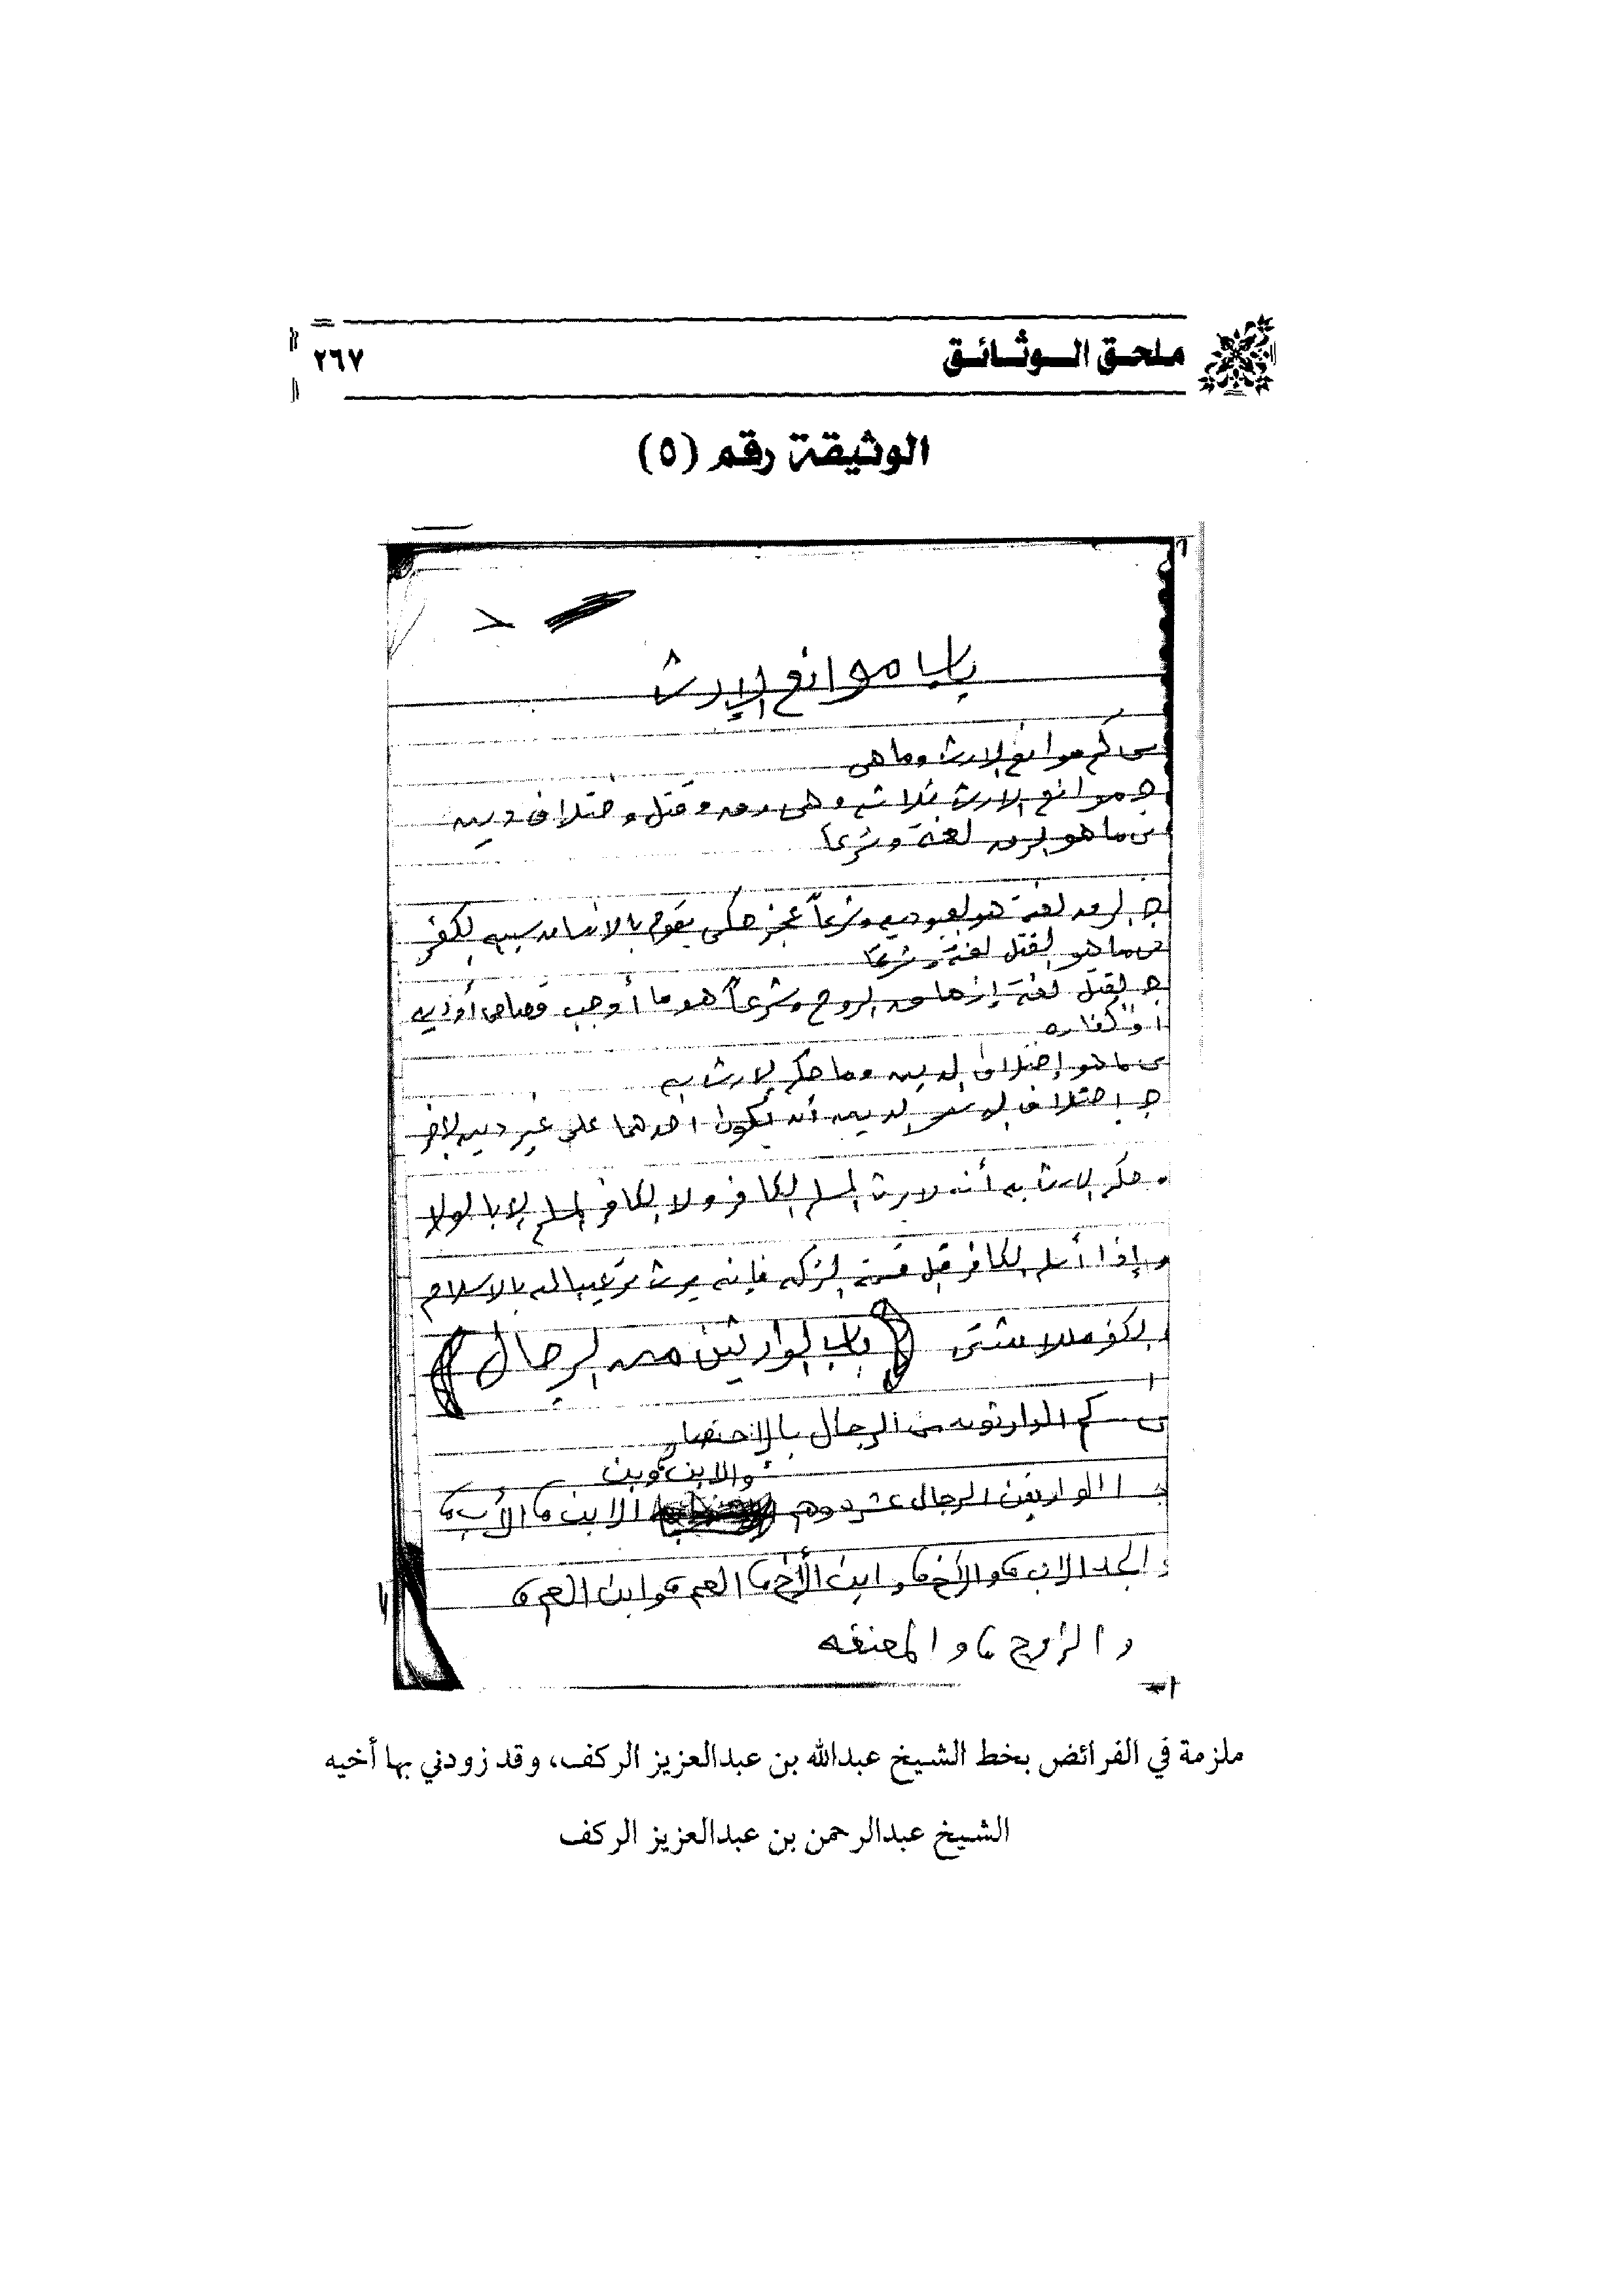 ملحق الوثائق
٢٦٧
الوثيقة رقم (٥)
باب موانع الإرث
س كم موانع الارث وما هي
ج موانع الارث ثلاثه وهي رق وقتل واختلاف دين
س ما هو الرق لغة وشرعا
ج الرق لغة هو العبوديه وشرعاً عجز حكمي يقوم بالانسان سببه الكفر
س ما هو القتل لغة وشرعا
ج القتل لغة إزهاق الروح وشرعاً هو ما أوجب قصاص أو ديه
او كفاره
س ما هو إختلاف الدين وما حكم الارث به
ج اختلاف الدين أن يكون احدهما على غير دين الاخر
وحكم الارث به أنه لا يرث المسلم الكافر ولا الكافر المسلم إلا بالولا
وإذا أسلم الكافر قبل قسمة التركه فإنه يرث ترغيبا له بالاسلام
الكفر ملل شتى ( باب الوارثين من الرجال )
س كم الوارثون من الرجال بالاختصار
والابن وبن
ج الوارثين الرجال عشره وهم الابن، الأب،
والجد الاب، والأخ، وابن الأخ، العم، وابن العم،
والزوج، والمعتقه
ملزمة في الفرائض بخط الشيخ عبدالله بن عبدالعزيز الركف، وقد زودني بها أخيه
الشيخ عبدالرحمن بن عبدالعزيز الركف